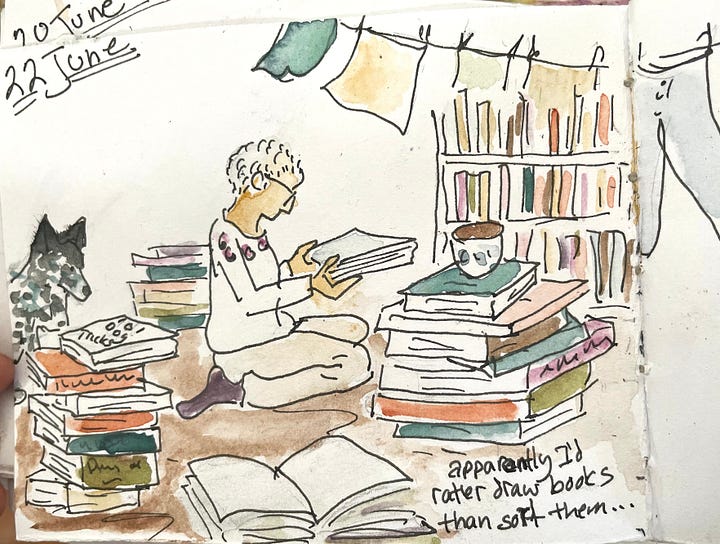 20 June
22 June
Tricks
apparently I'd
rater draw books
than sort them...